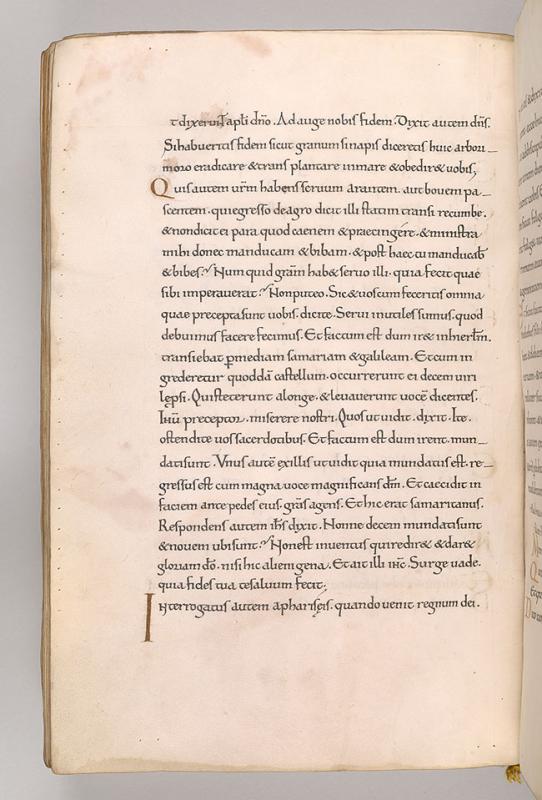 t dixerunt apli dno. Adauge nobis fidem. Dixit autem dns.
Si habueritis fidem sicut granum sinapis diceretis huic arbori
moro eradicare & trans plantare inmare & obedir& vobis,
Quis autem vrm habens servum arantem. aut bovem pa_
scentem. qui egresso de agro dicit illi statim transi recumbe.
& non dicit ei para quod caenem & praecingere. & ministra
mihi donec manducam & bibam. & post haec tu manducab
& bibes? Num quid gram hab& servo illi. quia fecit quae
sibi imperaverat? Non puteo. Sic & vos cum feceritis omnia
quae precepta sunt vobis. dicite. Servi inutiles sumus. quod
debuimus facere fecimus. Et factum est dum ir& inhierlm.
transiebat p mediam samariam & galileam. Et cum in
grederetur quodda castellum. occurrerunt ei decem viri
lepsi. Qui steterunt alonge. & levaverunt voce dicentes.
Ihu preceptor. miserere nostri. Quos ut vidit. dixit. Ite.
ostendite vos sacerdotibus. Et factum est dum irent. mun_
dati sunt. Vnus aute exillis ut vidit quia mundatus est. re_
gressus est cum magna voce magnificans dm. Et caecidit in
faciem ante pedes eius. gras agens. Et hic erat samaritanus.
Respondens autem ihs dixit. Nonne decem mundati sunt
& novem ubi sunt? Non est inventus qui redir& & dar&
gloriam do. nisi hic alienigena. Et ait illi ihc. Surge vade.
quia fides tua te salvum fecit.
Interrogatus autem apharisęis. quando venit regnum dei.